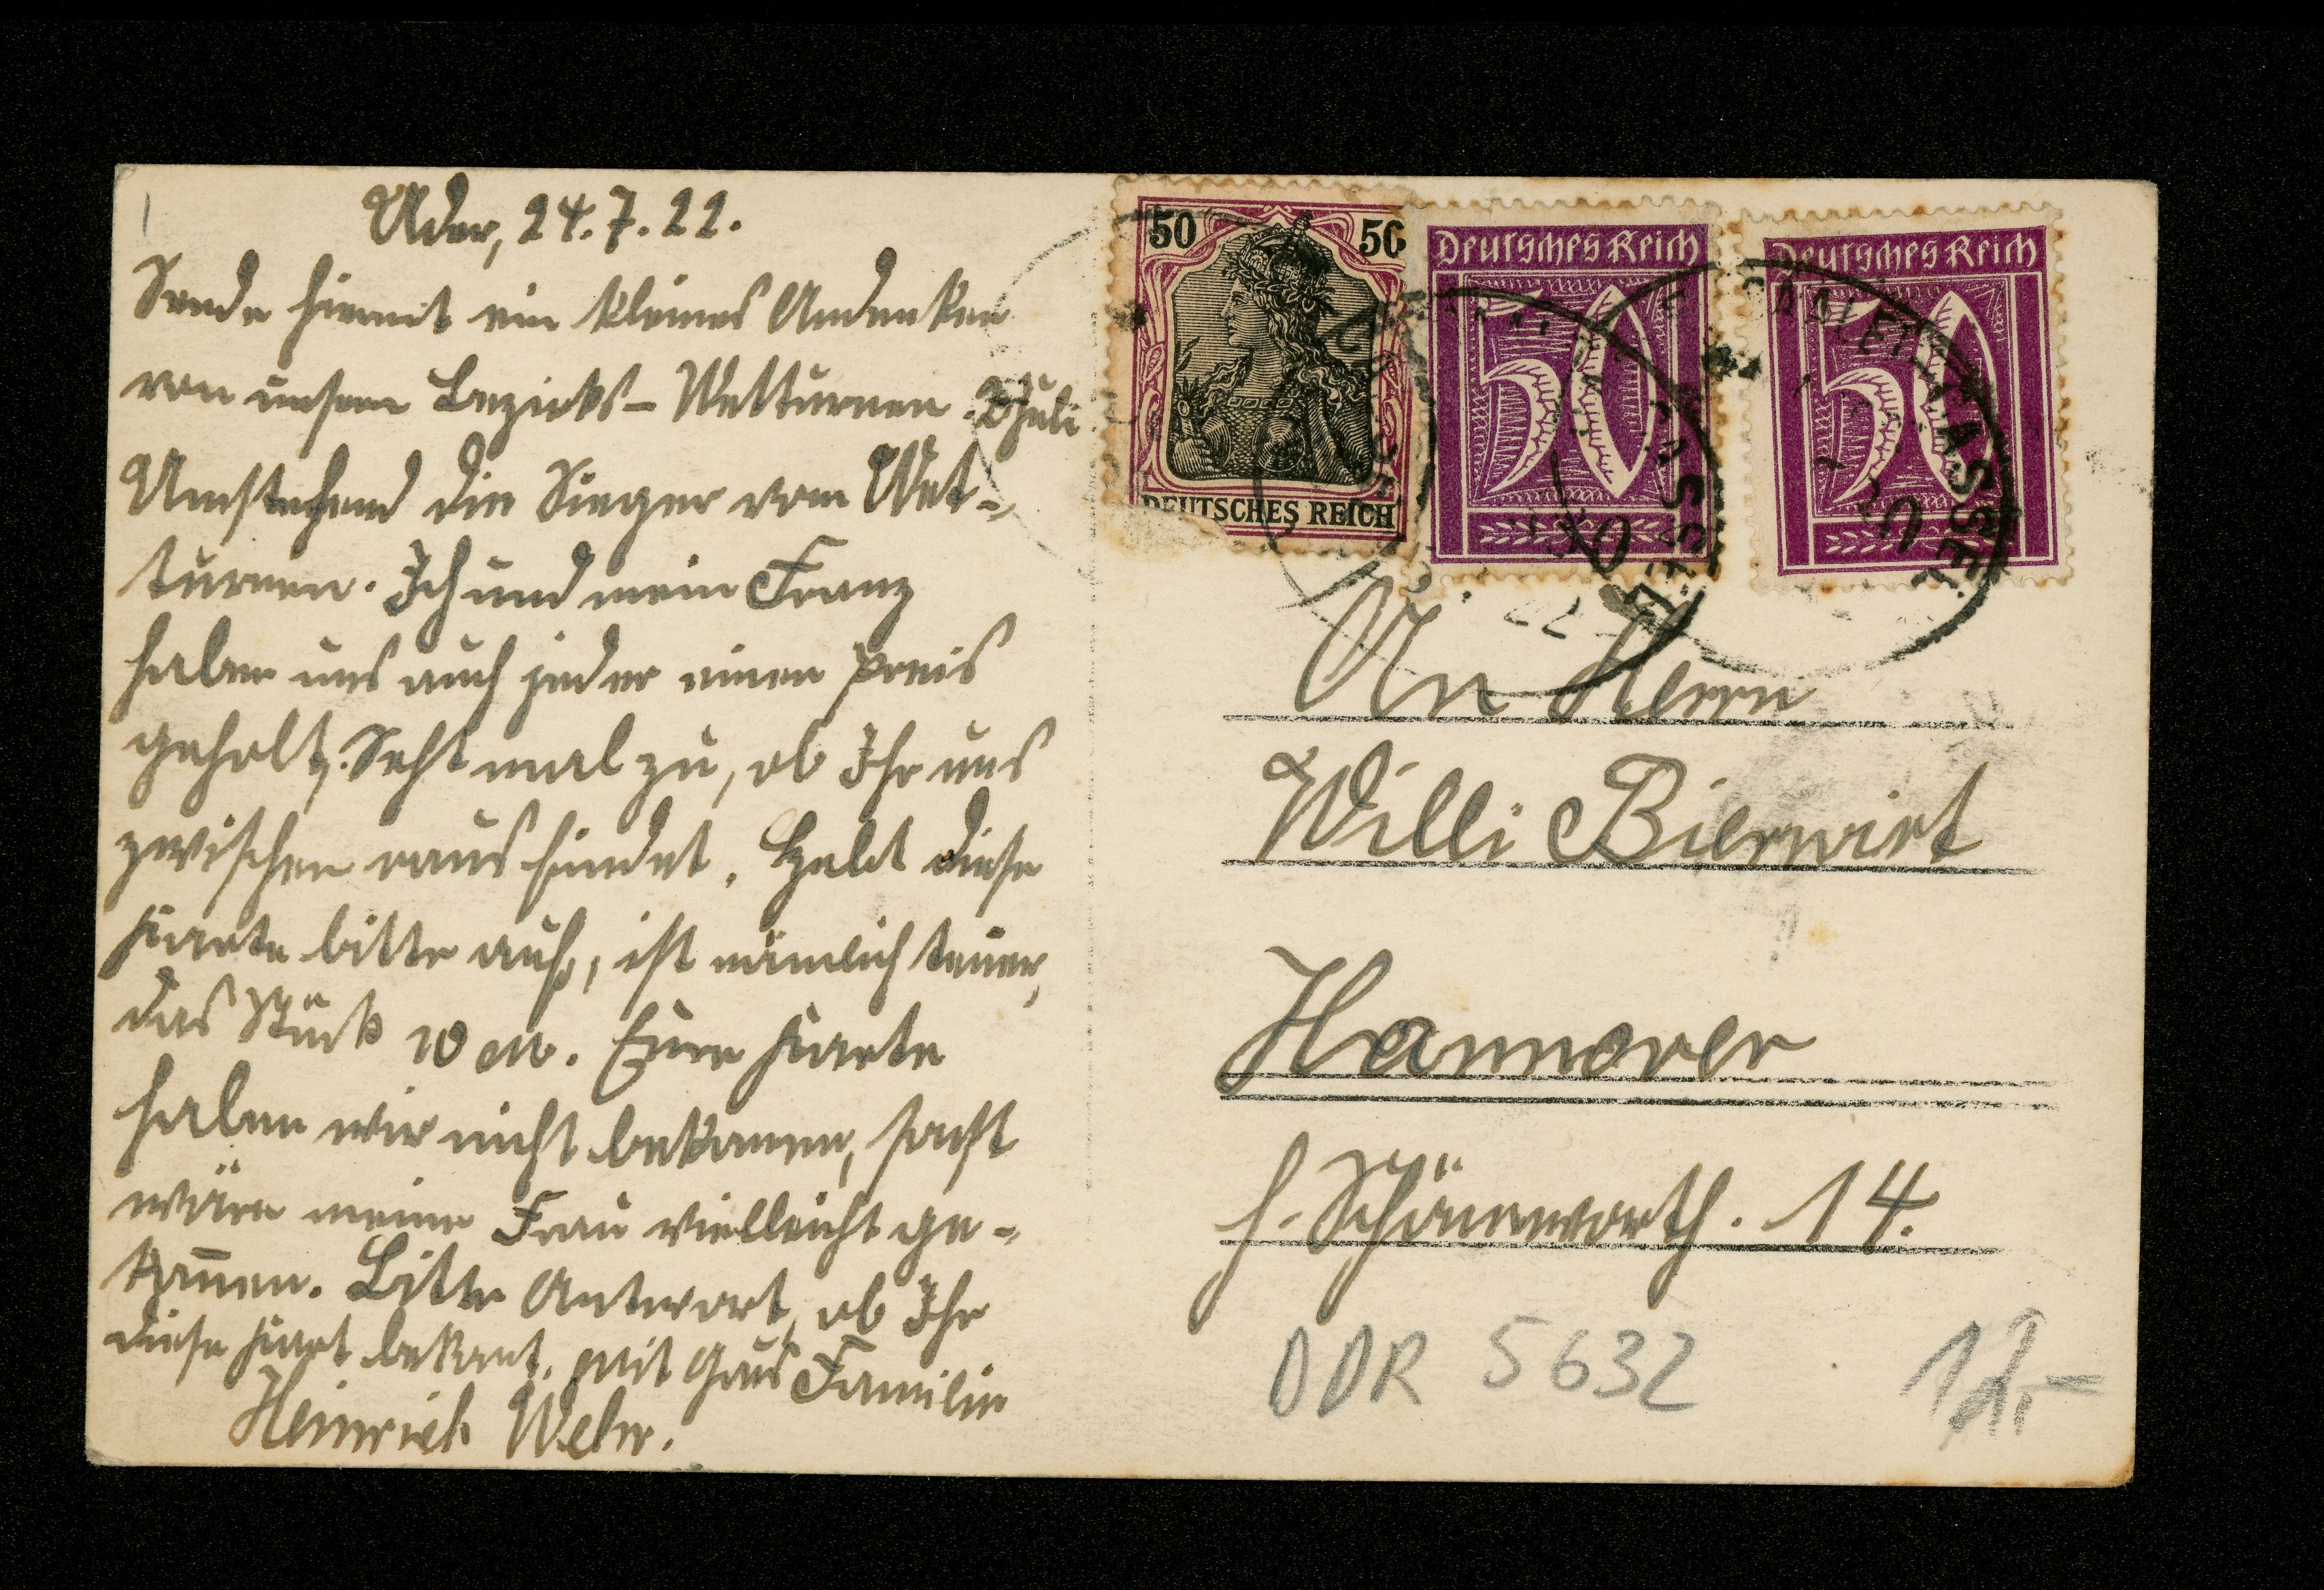 Uder, 24.7.22.
Sende hiermit ein kleines Andenken
von unsern Bezirks-Wetturnen 2 Juli
Umstehend die Sieger vom Wet-
turnen. Ich und mein Franz
haben uns auch jeder einen Preis
geholt. Seht mal zu, ob Ihr uns
zwischen raus findet. Hebt diese
Karte bitte auf, ist nämlich teuer,
das Stück 10 M. Eure Karte
haben wir nicht bekomen, sonst
wäre meine Frau vielleicht ge-
kom̄en. Bitte Antwort, ob Ihr
diese Kart bekomt. Mit Grus Familie
Heinrich Weber.
50 50
DEUTSCHES REICH
Deutsches Reich
50
Deutsches Reich
50
CASSEL
CASSEL
22
An Herrn
Willi Bierwirt
Hannover
14.
DDR 5632